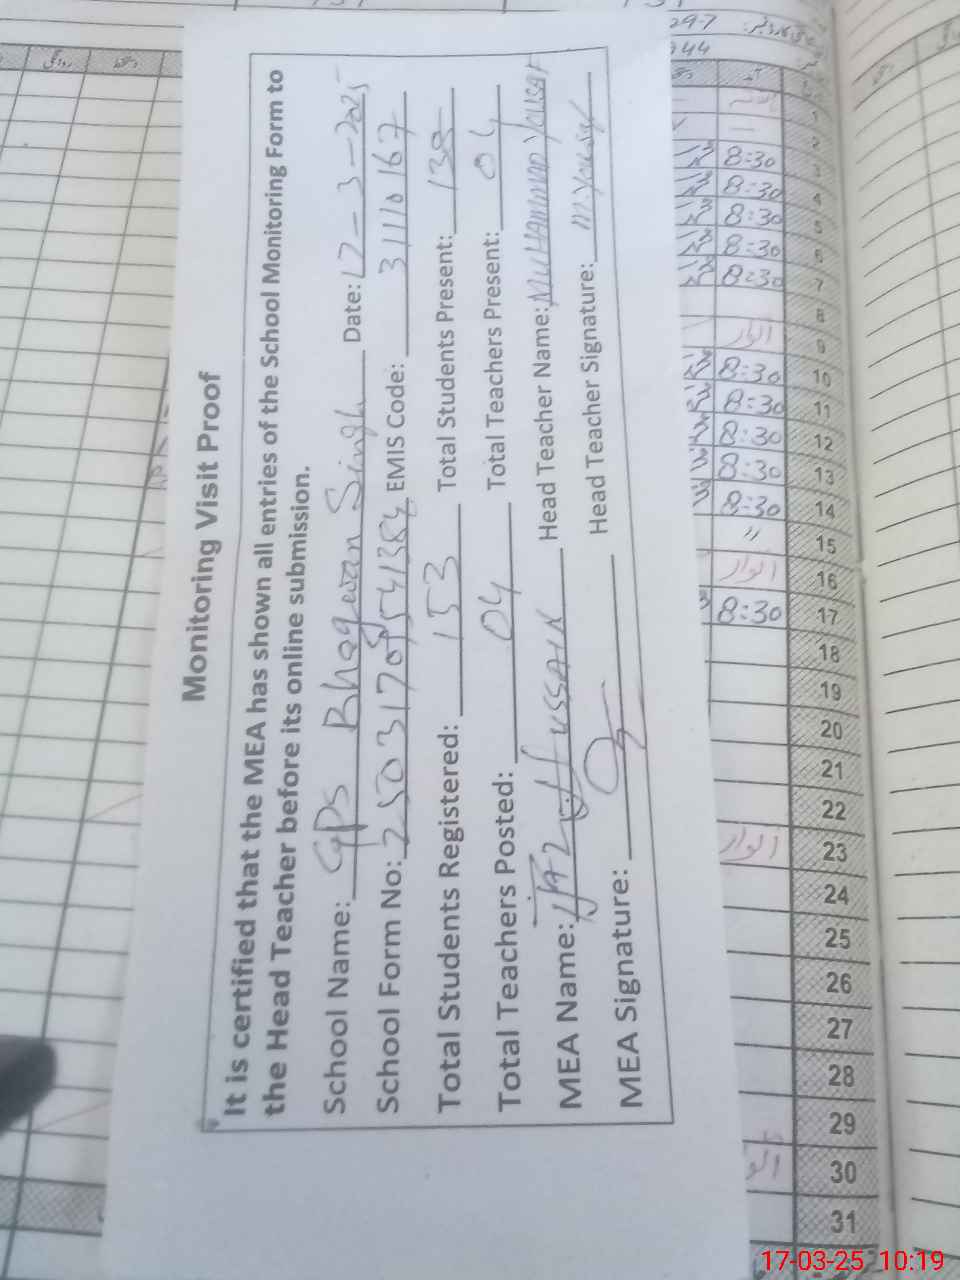 Monitoring Visit Proof
It is certified that the MEA has shown all entries of the School Monitoring Form to
the Head Teacher before its online submission.
School Name: GPS Bhagwan Singh Date: 17-3-2025
School Form No: EMIS Code: 31110167
Total Students Registered: 153 Total Students Present: 138
Total Teachers Posted: 04 Total Teachers Present: 04
MEA Name: IJAZ Hussain Head Teacher Name: Muhammad Yousaf
MEA Signature: Head Teacher Signature: M. Yousaf
1
2
8:30 3
8:30 4
8:30 5
8:30 6
8:30 7
8
اتوار 9
8:30 10
8:30 11
8:30 12
8:30 13
8:30 14
" 15
اتوار 16
8:30 17
18
19
20
21
22
اتوار 23
24
25
26
27
28
29
30
31
17-03-25 10:19